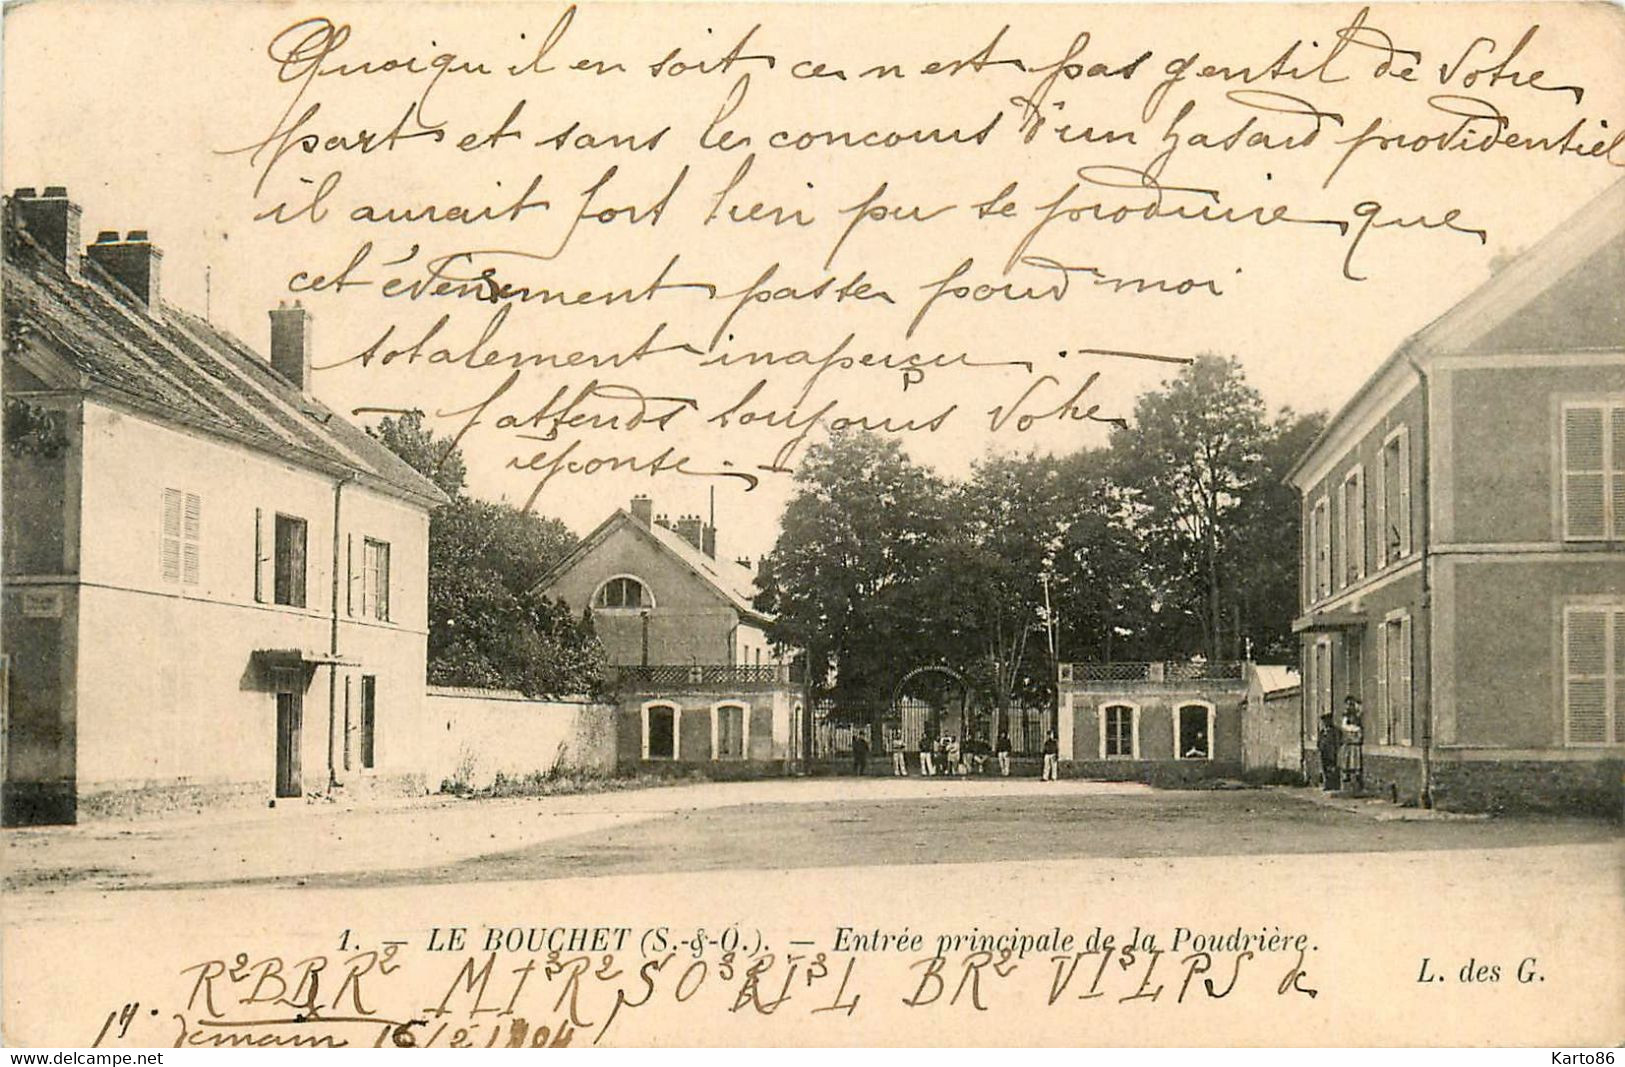 Quoiqu'il en soit ce n'est pas gentil de votre
part et sans le concours d'un hasard providentiel
il aurait fort bien pu se produire que
cet évènement passe pour moi
totalement inaperçu. —
— J'attends toujours votre
réponse. —
1. — LE BOUCHET (S.-&-O.). — Entrée principale de la Poudrière.
L. des G.
demain 16/2/1904
Karto86